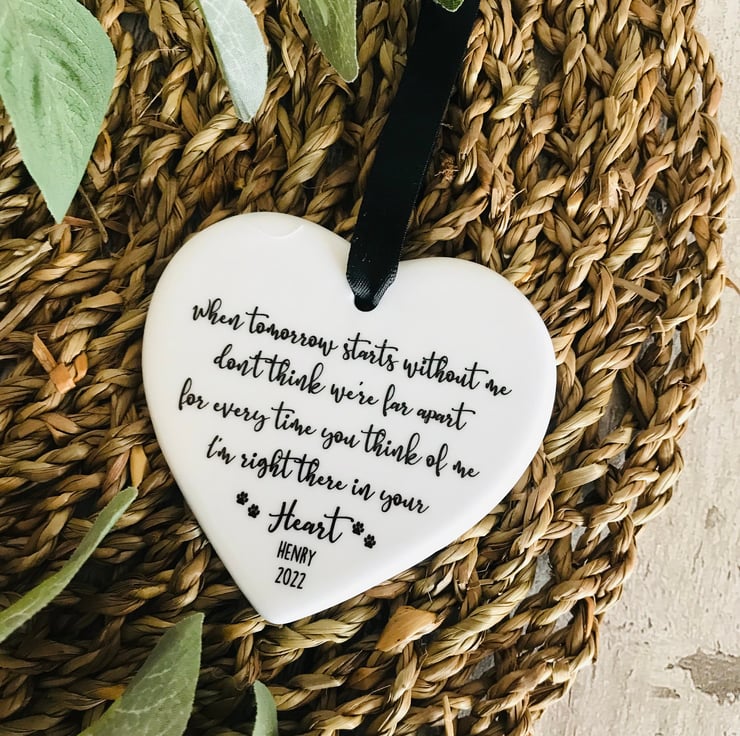 When tomorrow starts without me
dont think we're far apart
for every time you think of me
I'm right there in your
Heart
HENRY
2022